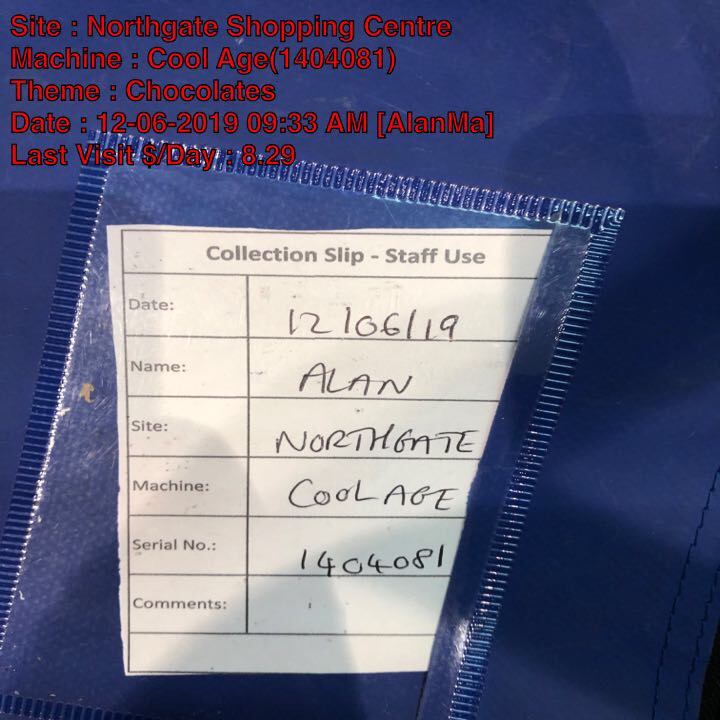 Site : Northgate Shopping Centre
Machine : Cool Age(1404081)
Theme : Chocolates
Date : 12-06-2019 09:33 AM [AlanMa]
Last Visit $/Day : 8.29
Collection Slip - Staff Use
Date: 12/06/19
Name: ALAN
Site: NORTHGATE
Machine: COOL AGE
Serial No.: 1404081
Comments: